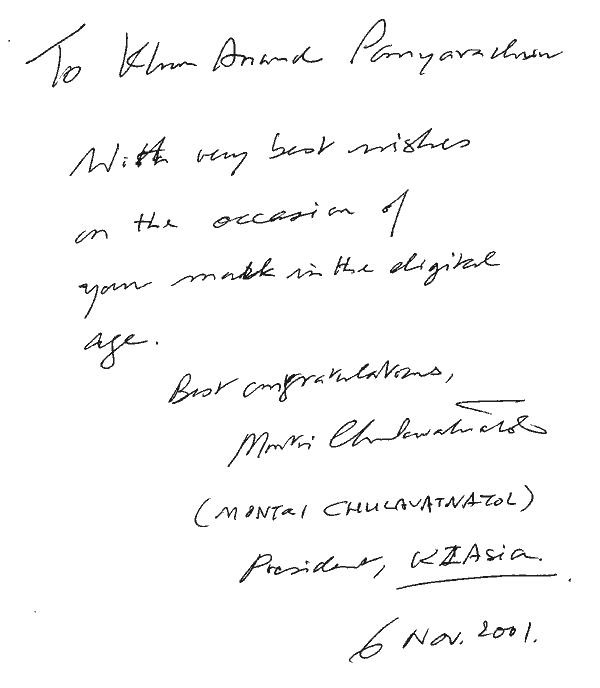 To Khun Anand Panyarachun
With very best wishes
on the occasion of
your mark in the digital
age.
Best congratulations,
Montri Chulavatnatol
(MONTRI CHULAVATNATOL)
President, KIAsia.
6 Nov. 2001.